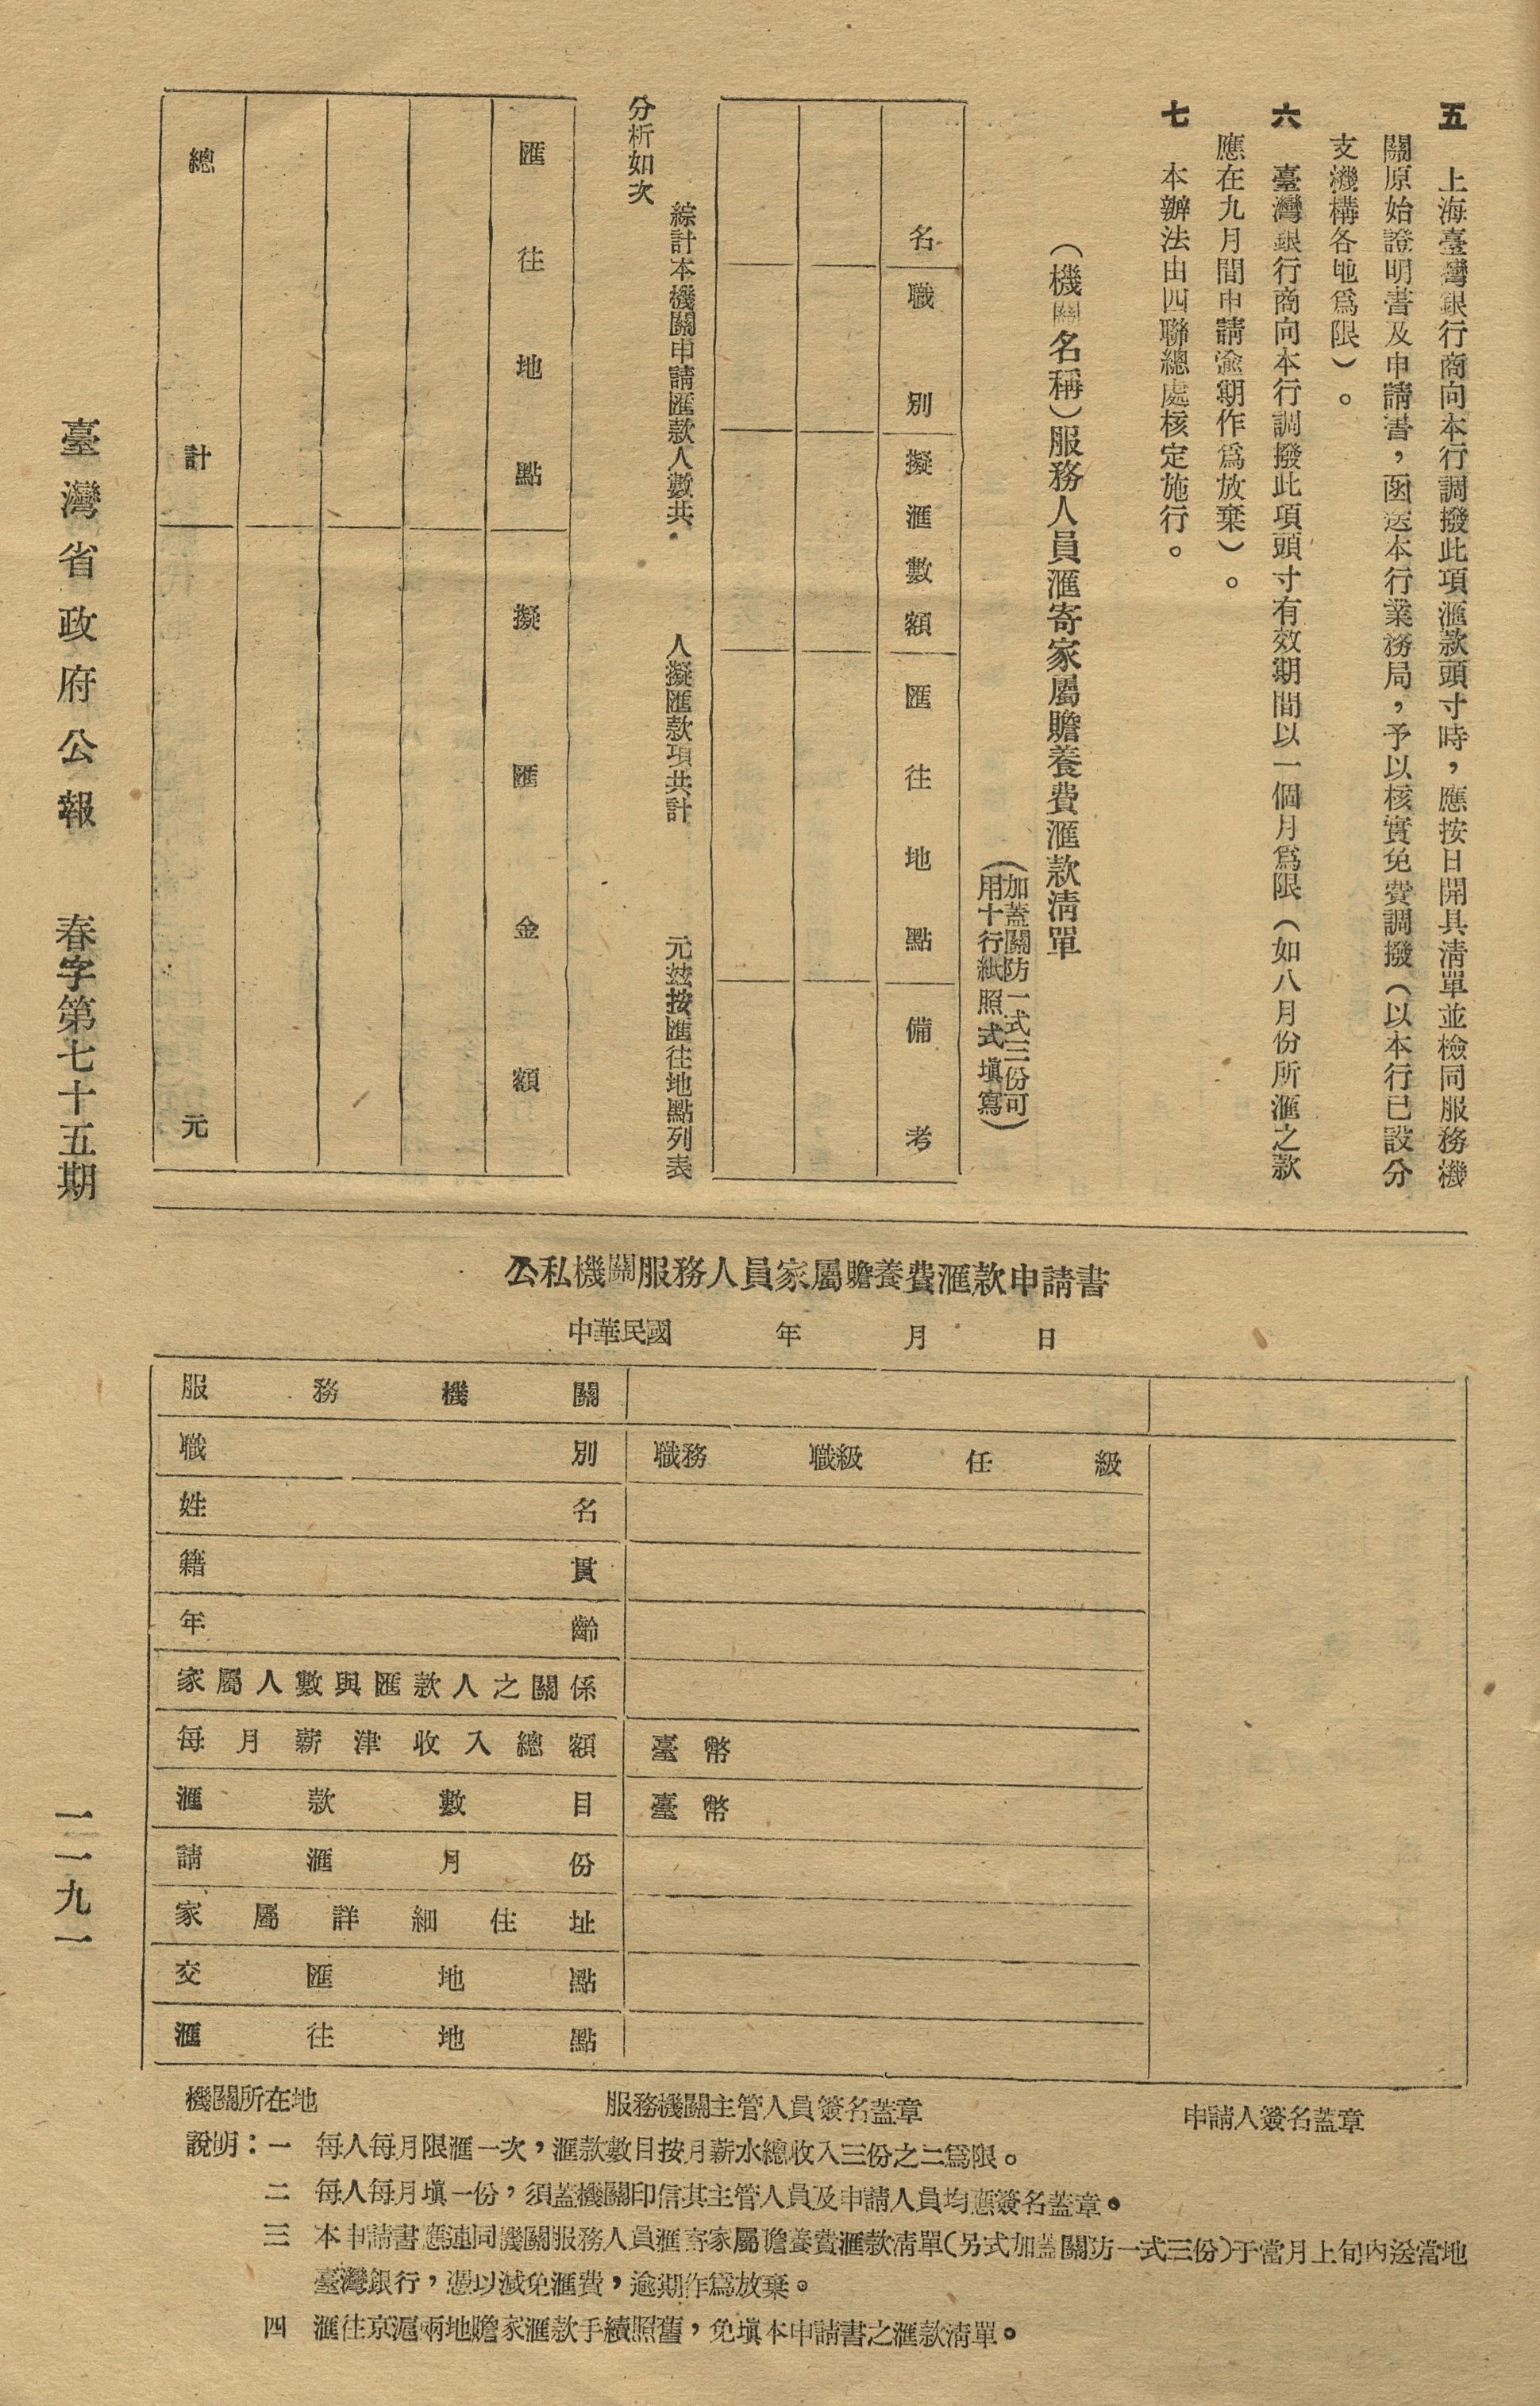 五　上海臺灣銀行商向本行調撥此項滙款頭寸時，應按日開具清單並檢同服務機
關原始證明書及申請書，函送本行業務局，予以核實免費調撥（以本行已設分
支機構各地爲限）。
六　臺灣銀行商向本行調撥此項頭寸有效期間以一個月爲限（如八月份所滙之款
應在九月間申請逾期作爲放棄）。
七　本辦法由四聯總處核定施行。
（機關名稱）服務人員滙寄家屬贍養費滙款清單
（加蓋關防一式三份可
用十行紙照式填寫）
名　職別　擬滙數額　匯往地點　備考
綜計本機關申請匯款人數共　人擬匯款項共計　元茲按匯往地點列表
分析如次
匯往地點　擬匯金額
總計　元
公私機關服務人員家屬贍養費滙款申請書
中華民國　年　月　日
服務機關
職別　職務　職級　任　級
姓名
籍貫
年齡
家屬人數與匯款人之關係
每月薪津收入總額　臺幣
滙款數目　臺幣
請滙月份
家屬詳細住址
交匯地點
滙往地點
機關所在地　服務機關主管人員簽名蓋章　申請人簽名蓋章
說明：一　每人每月限滙一次，滙款數目按月薪水總收入三份之二爲限。
二　每人每月填一份，須蓋機關印信其主管人員及申請人員均應簽名蓋章。
三　本申請書應連同機關服務人員滙寄家屬贍養費滙款清單（另式加蓋關防一式三份）于當月上旬內送當地
臺灣銀行，憑以減免滙費，逾期作爲放棄。
四　滙往京滬兩地贍家滙款手續照舊，免填本申請書之滙款清單。
臺灣省政府公報　春字第七十五期　一一九一